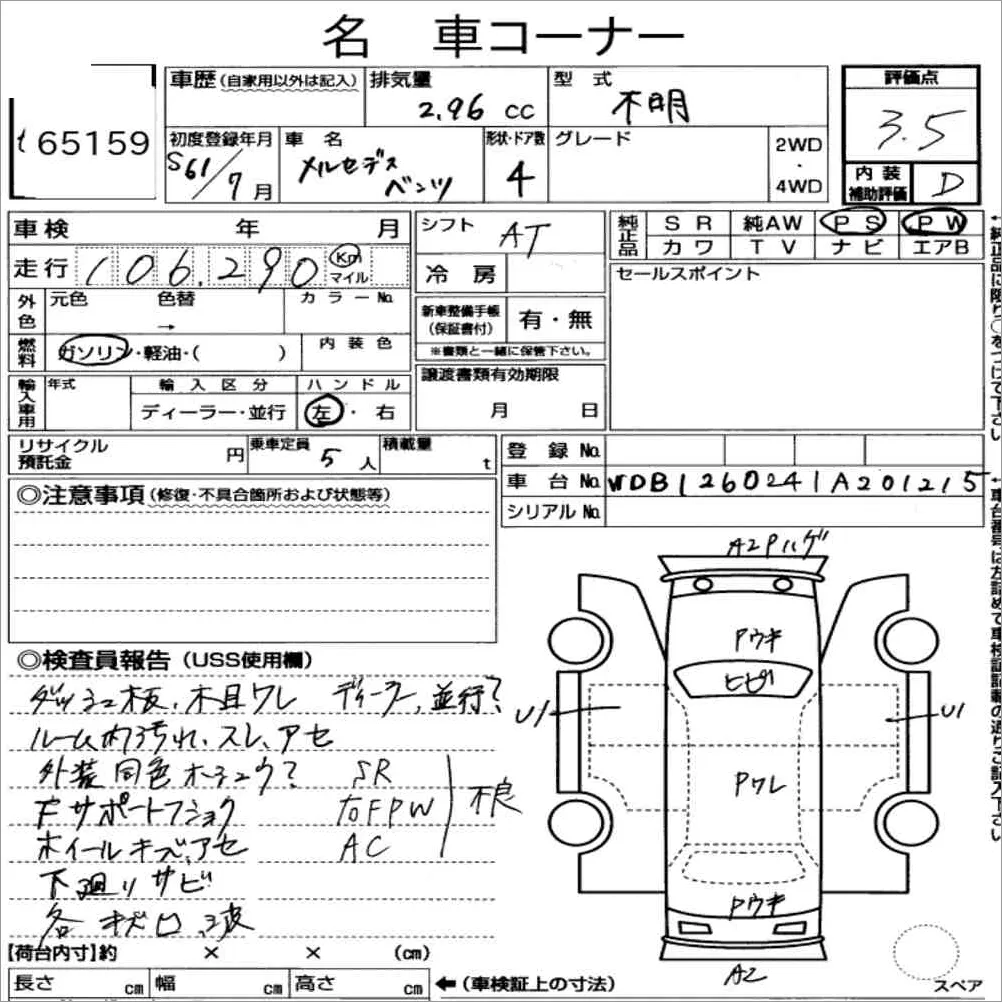 名 車コーナー
t 65159
車歴(自家用以外は記入)
排気量
2.96 cc
型 式
不明
評価点
3.5
初度登録年月
S61/7月
車 名
メルセデス
ベンツ
形状・ドア数
4
グレード
2WD
・
4WD
内 装
補助評価
D
車検 年 月
シフト
AT
純正品
SR 純AW PS PW
カワ TV ナビ エアB
走行
106,290
Km
マイル
冷 房
セールスポイント
外色
元色 色替
→
カラーNo
新車整備手帳
(保証書付)
有・無
※書類と一緒に保管下さい。
燃料
ガソリン・軽油・( )
内 装 色
輸入車用
年式
輸 入 区 分
ディーラー・並行
ハ ン ド ル
左・右
譲渡書類有効期限
月 日
リサイクル
預託金
円
乗車定員
5 人
積載量
t
登 録 No
車 台 No
WDB1260241A201215
シリアル No
◎注意事項(修復・不具合箇所および状態等)
◎検査員報告(USS使用欄)
ダッシュ板、木目ワレ ディーラー、並行?
ルーム内汚れ、スレ、アセ
外装同色ホチュウ? SR
Fサポートフショク 右FPW 不良
ホイールキズ、アセ AC
下廻リサビ
各キズ凹、波
A2Pハゲ
Pウキ
ヒビ
U1
U1
Pワレ
Pウキ
A2
スペア
【荷台内寸】約 × × (cm)
長さ cm 幅 cm 高さ cm
←(車検証上の寸法)
↑純正品に限り○をつけて下さい
↑車台番号は左詰めで車検証記載の通りご記入下さい